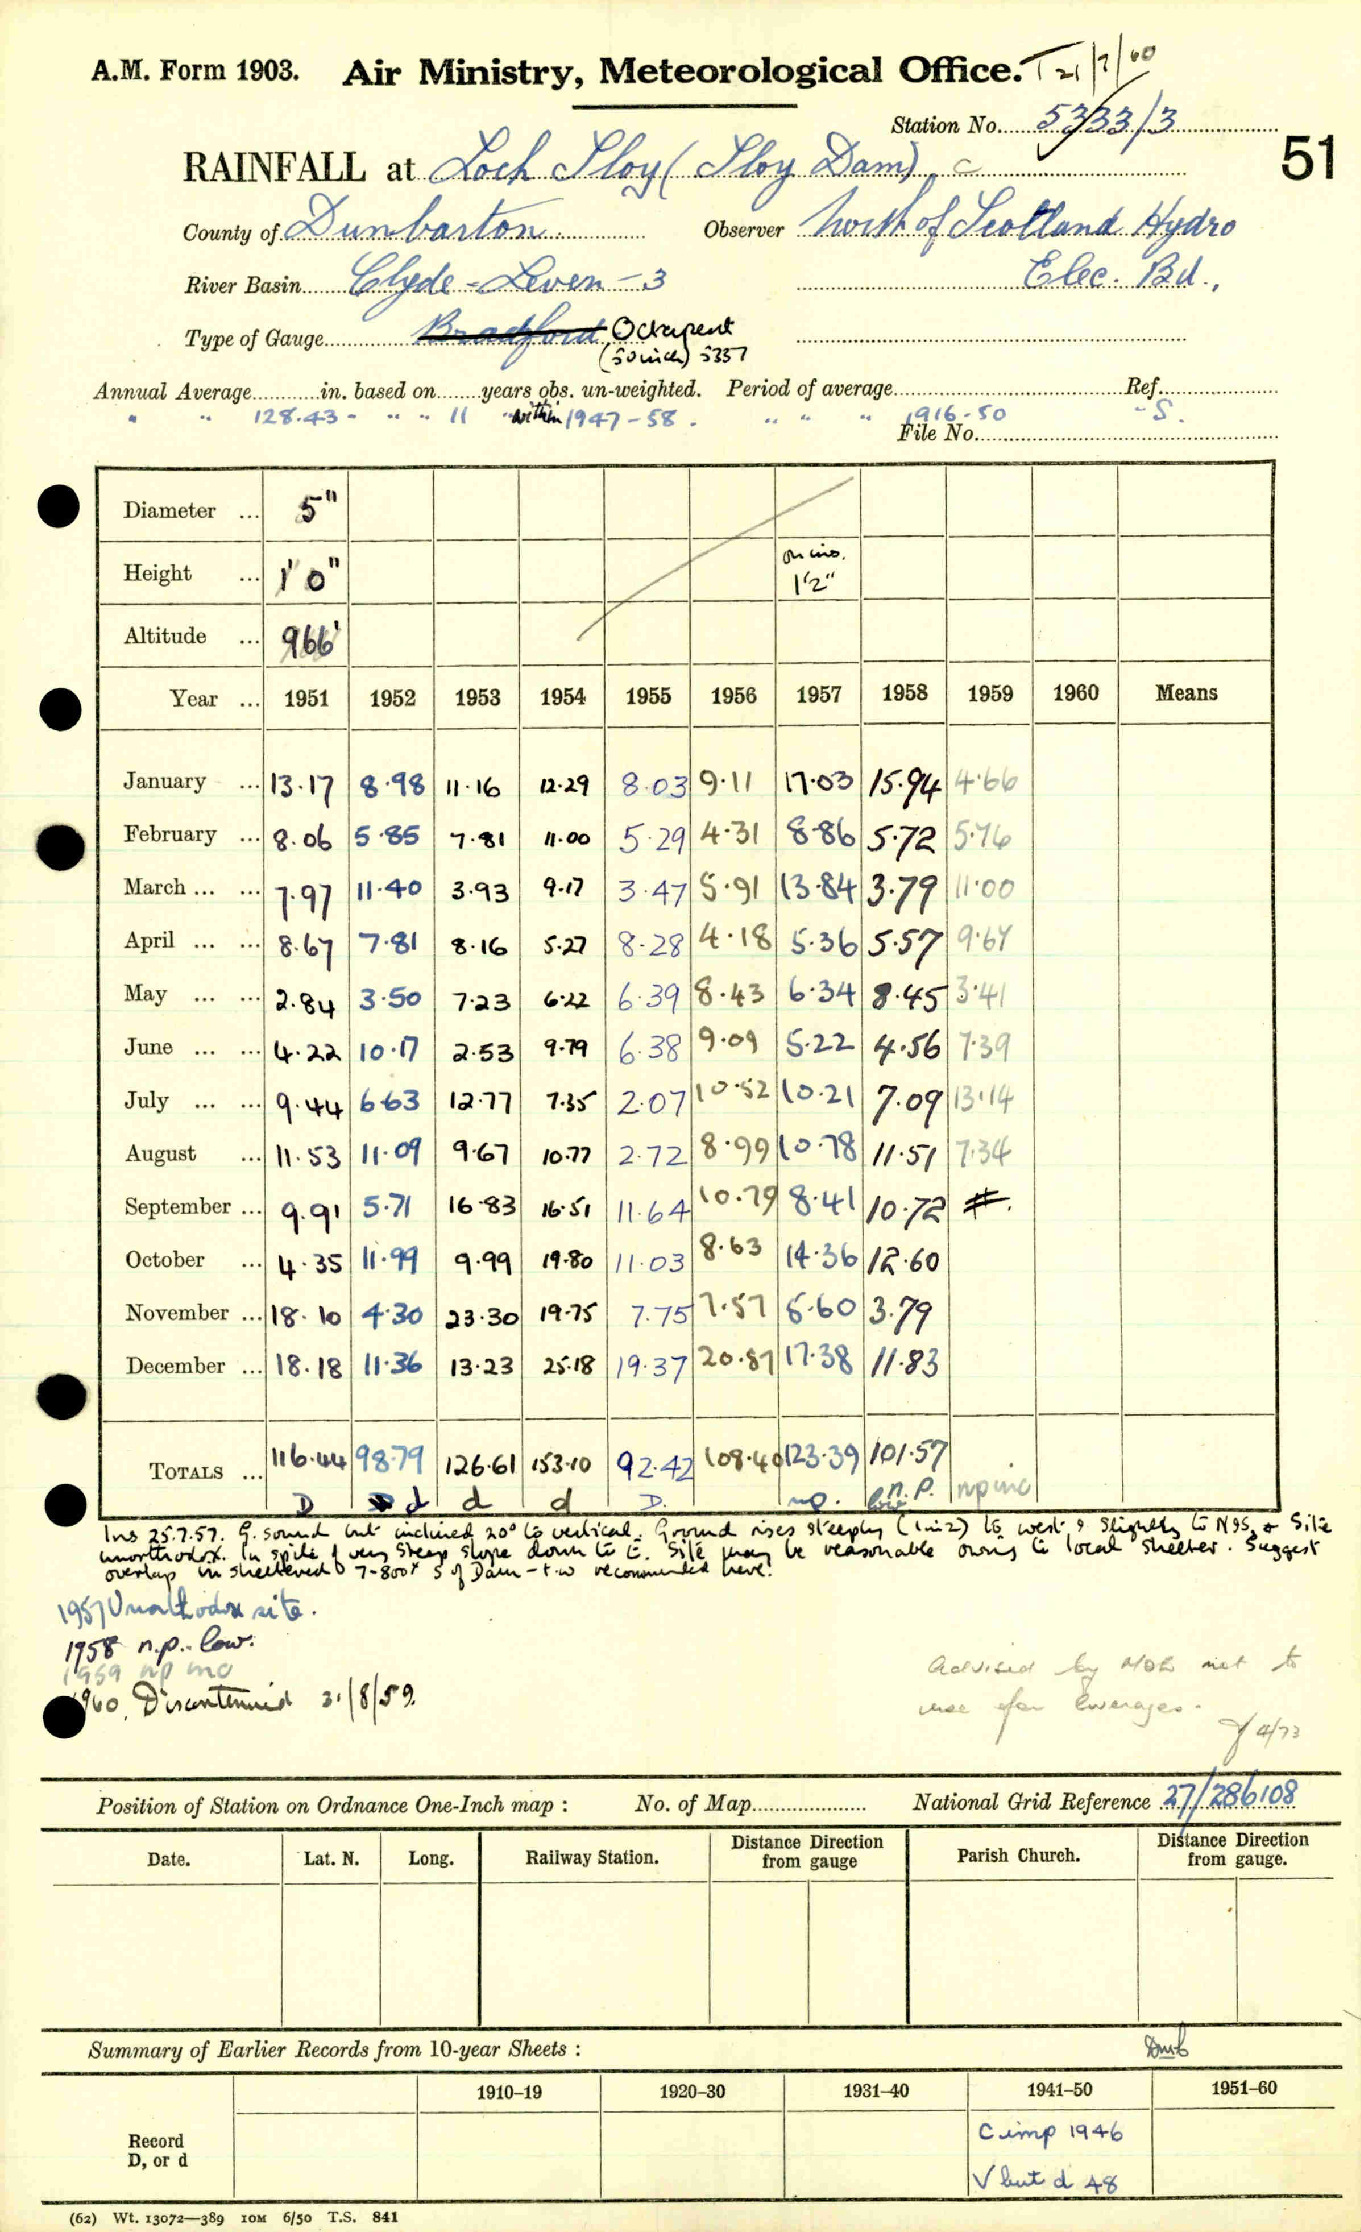 A.M. Form 1903. Air Ministry, Meteorological Office. T 21/7/60
Station No. 5333/3
51
RAINFALL at Loch Sloy (Sloy Dam) C
County of Dunbarton Observer North of Scotland Hydro
River Basin Clyde-Leven-3 Elec. Bd.,
Type of Gauge Bradford Octapent
(50 inch) 5337
Annual Average in. based on years obs. un-weighted. Period of average Ref.
" " 128.43 - " " 11 " within 1947-58. " " " 1916-50 " S.
File No.
Diameter ... 5"
Height ... 1'0" on ins. 1'2"
Altitude ... 966'
Year ... 1951 1952 1953 1954 1955 1956 1957 1958 1959 1960 Means
January ... 13.17 8.98 11.16 12.29 8.03 9.11 17.03 15.94 4.66
February ... 8.06 5.85 7.81 11.00 5.29 4.31 8.86 5.72 5.76
March ... ... 7.97 11.40 3.93 9.17 3.47 5.91 13.84 3.79 11.00
April ... ... 8.67 7.81 8.16 5.27 8.28 4.18 5.36 5.57 9.67
May ... ... 2.84 3.50 7.23 6.22 6.39 8.43 6.34 8.45 3.41
June ... ... 4.22 10.17 2.53 9.79 6.38 9.09 5.22 4.56 7.39
July ... ... 9.44 6.63 12.77 7.35 2.07 10.52 10.21 7.09 13.14
August ... 11.53 11.09 9.67 10.77 2.72 8.99 10.78 11.51 7.34
September ... 9.91 5.71 16.83 16.51 11.64 10.79 8.41 10.72 #.
October ... 4.35 11.99 9.99 19.80 11.03 8.63 14.36 12.60
November ... 18.10 4.30 23.30 19.75 7.75 7.57 5.60 3.79
December ... 18.18 11.36 13.23 25.18 19.37 20.87 17.38 11.83
TOTALS ... 116.44 98.79 126.61 153.10 92.42 108.40 123.39 101.57
D d d d D. n.p. low n.P. np inc
Ins 25.7.57. G. sound but inclined 20° to vertical. Ground rises steeply (1 in 2) to west & slightly to N & S. Site
unorthodox. In spite of very steep slope down to E. Site may be reasonable owing to local shelter. Suggest
overlap in sheltered 7-800ft S of Dam - t.w recommended here.
1957 Unorthodox site.
1958 n.p. low.
1959 np inc
1960. Discontinued 31/8/59.
Advised by not to
use for averages.
4/73
Position of Station on Ordnance One-Inch map : No. of Map National Grid Reference 27/286108
Date. Lat. N. Long. Railway Station. Distance Direction from gauge Parish Church. Distance Direction from gauge.
Summary of Earlier Records from 10-year Sheets : Dmb
1910–19 1920–30 1931–40 1941–50 1951–60
Record
D, or d
C imp 1946
V but d 48
(62) Wt. 13072—389 10M 6/50 T.S. 841